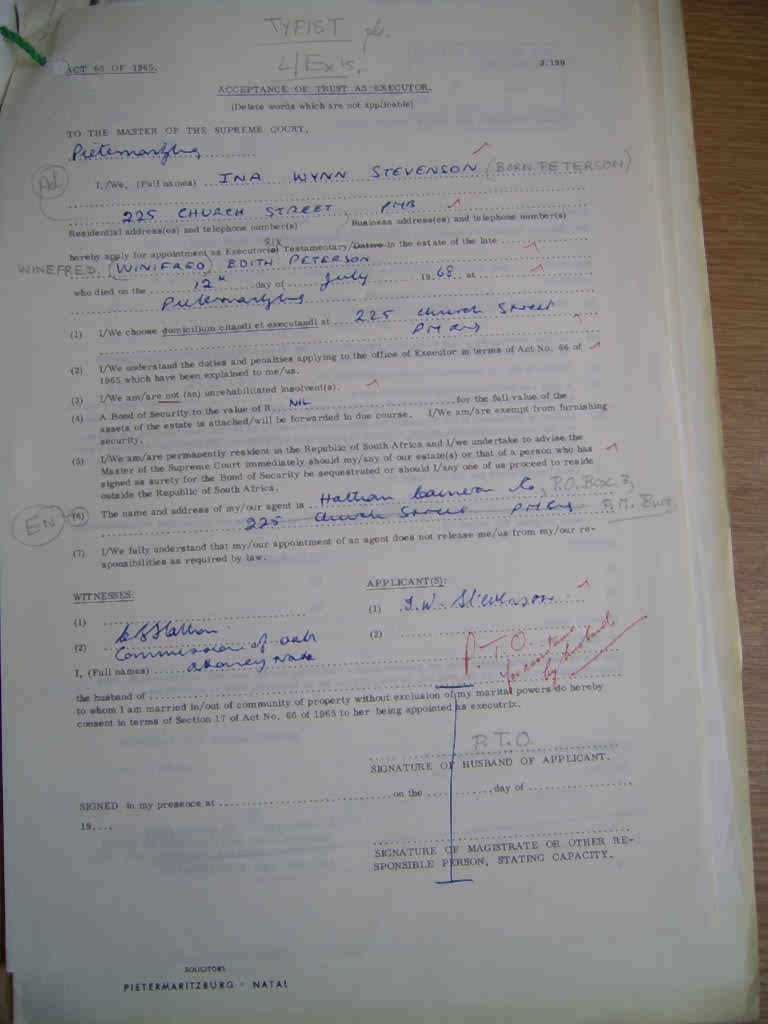 TYPIST pls.
L/Ex ls.
ACT 66 OF 1965.
J.199
ACCEPTANCE OF TRUST AS EXECUTOR.
(Delete words which are not applicable)
TO THE MASTER OF THE SUPREME COURT,
Pietermaritzburg
Ad.
I./We. (Full names) INA WYNN STEVENSON (BORN PETERSON)
225 CHURCH STREET, PMB
Residential address(es) and telephone number(s) Business address(es) and telephone number(s)
hereby apply for appointment as Executor(s) rix Testamentary/Dative in the estate of the late
WINEFRED (WINIFRED) EDITH PETERSON
who died on the 12th day of July 1968 at
Pietermaritzburg
(1) I/We choose domicilium citandi et executandi at 225 Church Street
PMBurg
(2) I/We understand the duties and penalties applying to the office of Executor in terms of Act No. 66 of
1965 which have been explained to me/us.
(3) I/We am/are not (an) unrehabilitated insolvent(s).
(4) A Bond of Security to the value of R NIL for the full value of the
assets of the estate is attached/will be forwarded in due course. I/We am/are exempt from furnishing
security.
(5) I/We am/are permanently resident in the Republic of South Africa and I/we undertake to advise the
Master of the Supreme Court immediately should my/any of our estate(s) or that of a person who has
signed as surety for the Bond of Security be sequestrated or should I/any one of us proceed to reside
outside the Republic of South Africa.
EN (6) The name and address of my/our agent is Hathorn Cameron & Co, P.O. Box 3,
225 Church Street PMBurg P.M. Burg
(7) I/We fully understand that my/our appointment of an agent does not release me/us from my/our re-
sponsibilities as required by law.
WITNESSES:
APPLICANT(S):
(1)
(1) I.W. Stevenson
(2)
(2)
Commissioner of oaths
I, (Full names) attorney
P.T.O.
for assistance
by husband
the husband of
to whom I am married in/out of community of property without exclusion of my marital powers do hereby
consent in terms of Section 17 of Act No. 66 of 1965 to her being appointed as executrix.
P.T.O.
SIGNATURE OF HUSBAND OF APPLICANT.
SIGNED in my presence at on the day of
19....
SIGNATURE OF MAGISTRATE OR OTHER RE-
SPONSIBLE PERSON, STATING CAPACITY.
SOLICITORS
PIETERMARITZBURG - NATAL